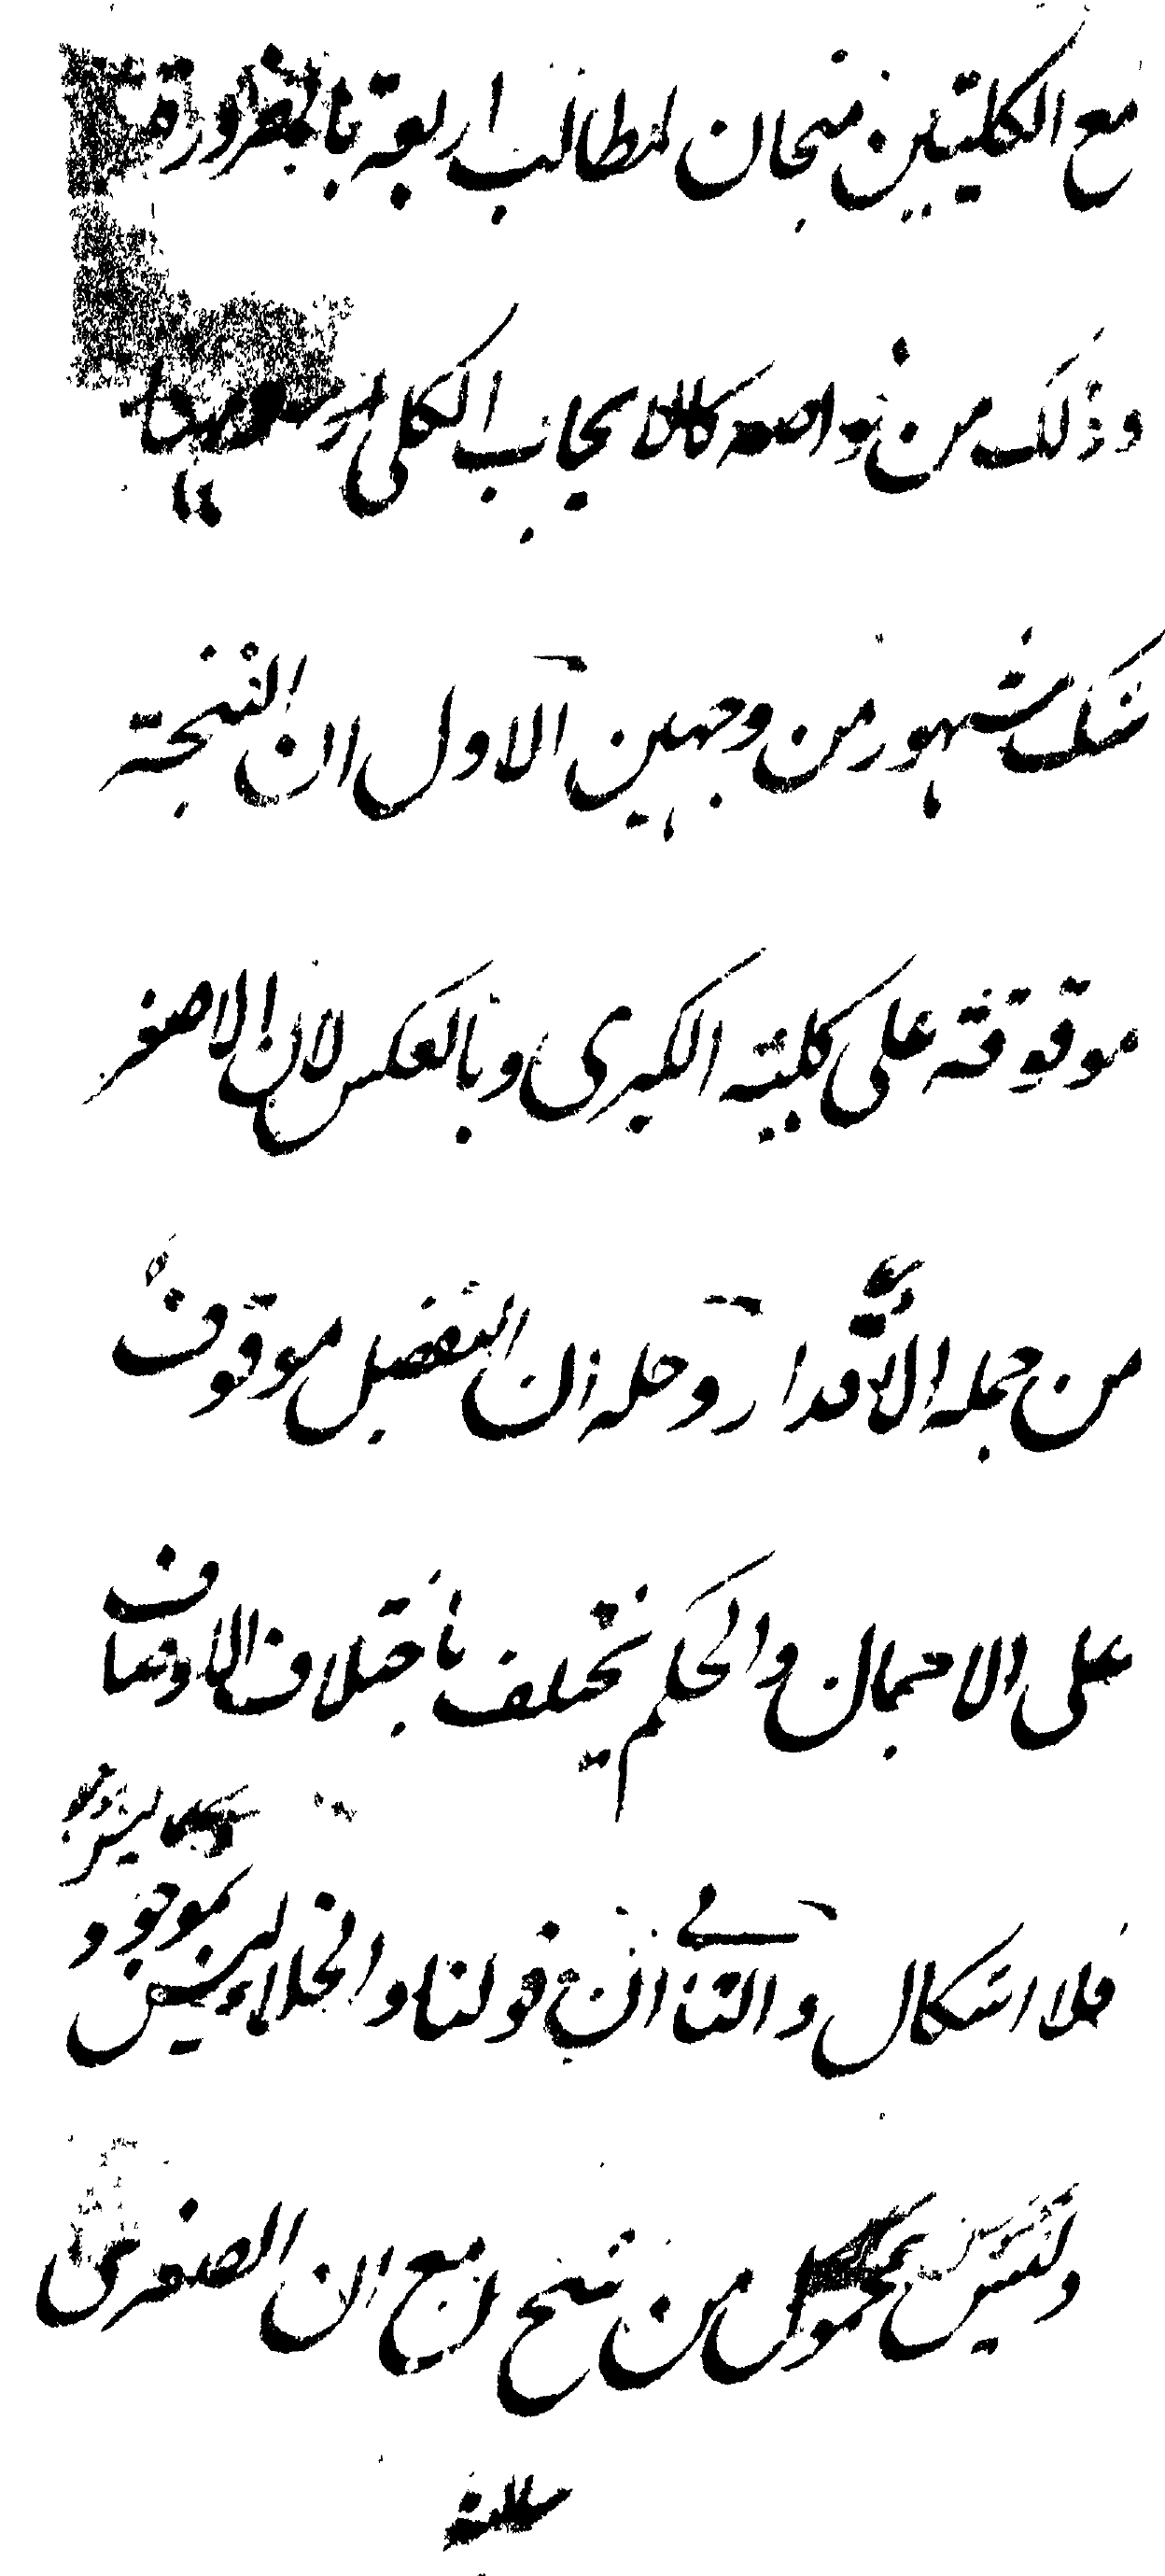 مع الكليتين منتجان لمطالب اربعة بالضرورة
وذلك من خواصه كالايجاب الكلى
شك مشهور من وجهين الاول ان النتيجة
موقوفة على كلية الكبرى وبالعكس لان الاصغر
من جملة الاقدار وحله ان التفصيل موقوف
على الاجمال والحكم يختلف باختلاف الاوصاف
فلا اشكال والثانى ان قولنا الخلاء ليس بموجود
وليس بمحمول من ينتج مع ان الصغرى